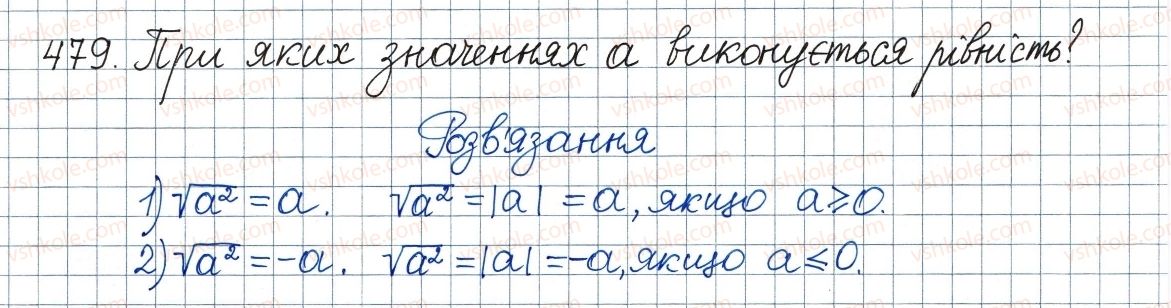 479. При яких значеннях а виконується рівність?
Розв'язання
1) √a² = a. √a² = |a| = a, якщо a ⩾ 0.
2) √a² = -a. √a² = |a| = -a, якщо a ⩽ 0.